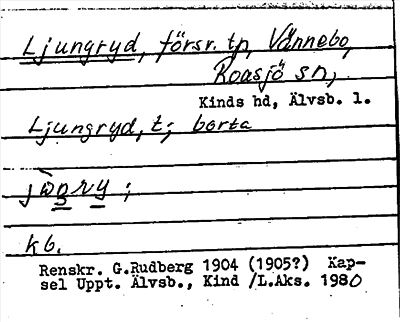 Ljungryd, försv. tp, Vännebo,
Roasjö sn,
Kinds hd, Älvsb. l.
Ljungryd, t; borta
k6.
Renskr. G.Rudberg 1904 (1905?) Kap-
sel Uppt. Älvsb., Kind /L.Aks. 1980